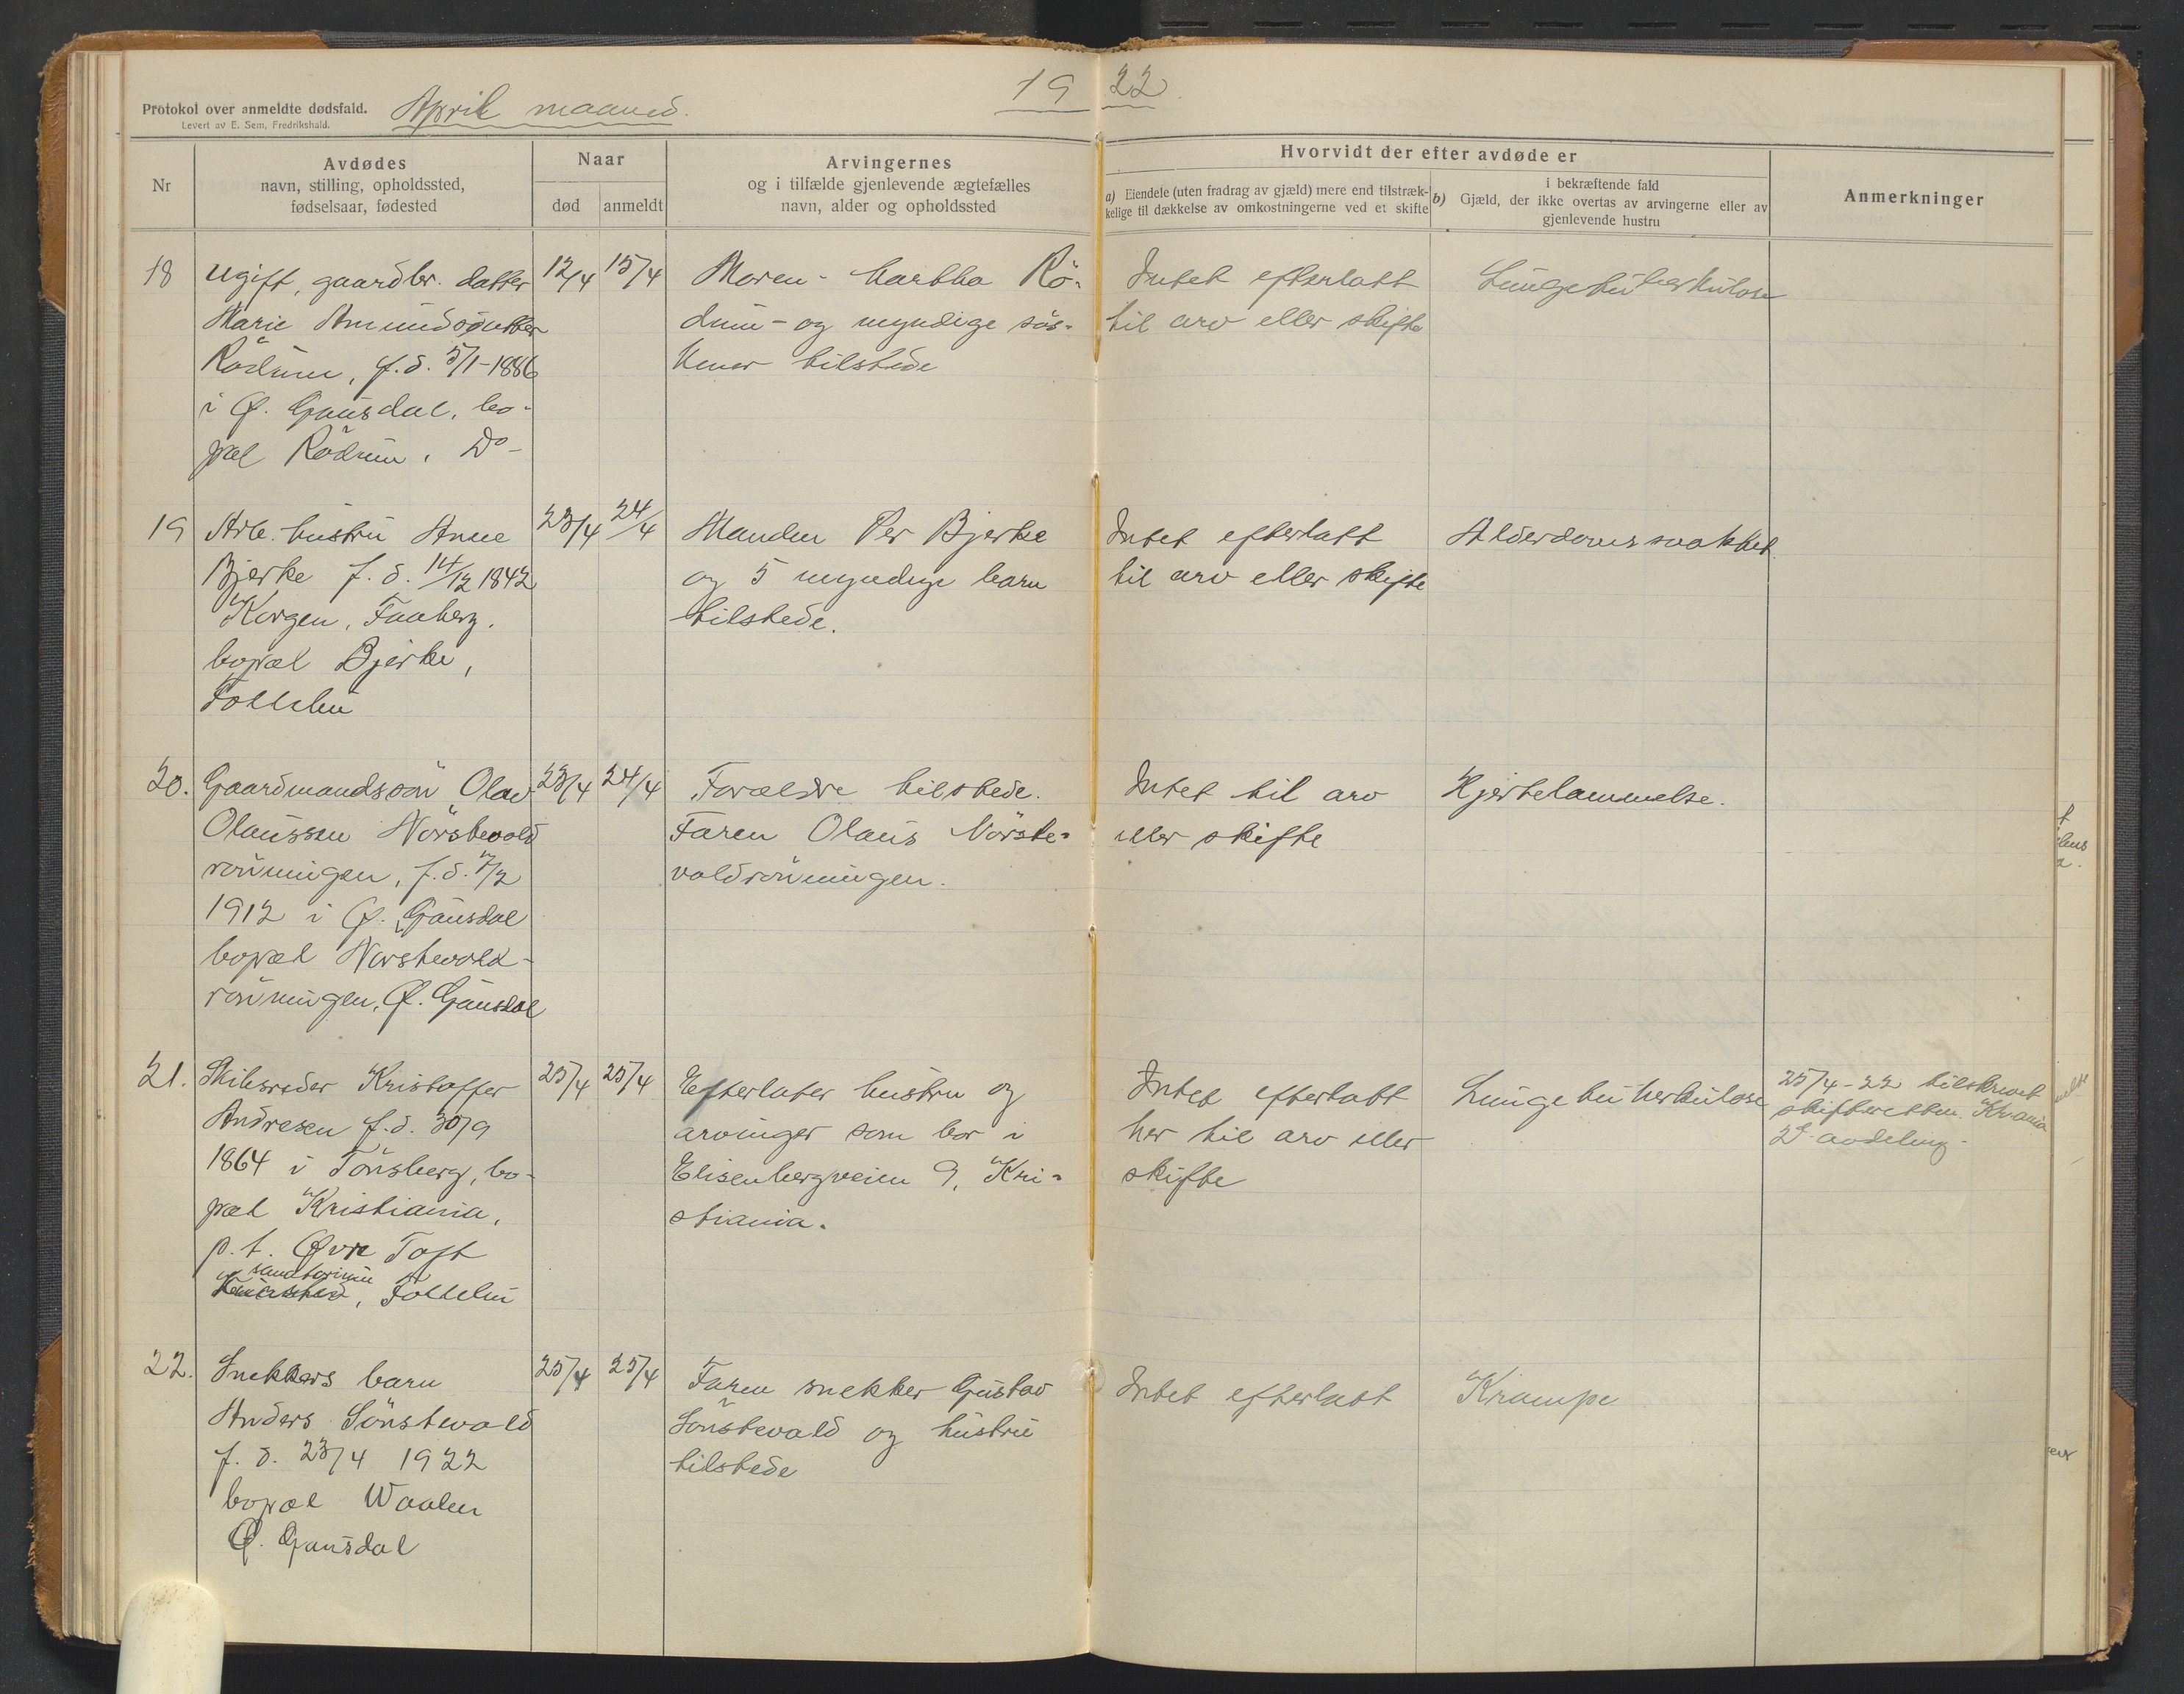 Protokol over anmeldte dødsfald.
Levert av E. Sem, Fredrikshald.
April maaned.
19 22.
Nr
Avdødes
navn, stilling, opholdssted,
fødselsaar, fødested
Naar
død
anmeldt
Arvingernes
og i tilfælde gjenlevende ægtefælles
navn, alder og opholdssted
Hvorvidt der efter avdøde er
a) Eiendele (uten fradrag av gjæld) mere end tilstræk-
kelige til dækkelse av omkostningerne ved et skifte
i bekræftende fald
b) Gjæld, der ikke overtas av arvingerne eller av
gjenlevende hustru
Anmerkninger
18
ugift, gaardbr. datter
Marie Amundsdatter
Rödum, f.d. 5/1-1886
i Ø. Gausdal, bo-
pæl Rödum, Do-
12/4
15/4
Moren - Martha Rö-
dum - og myndige søs-
kener tilstede
Intet efterlatt
til arv eller skifte
Lungetuberkulose
19
Arb. hustru Anne
Bjerke f.d. 14/12 1842
Korgen, Faaberg.
bopæl Bjerke,
Follebu
23/4
24/4
Manden Per Bjerke
og 5 myndige barn
tilstede.
Intet efterlatt
til arv eller skifte
Alderdomssvakhet.
20.
Gaardmandssön Olav
Olaussen Nörstevold
rönningen, f.d. 7/2
1912 i Ø. Gausdal
bopæl Nörstevold-
rönningen, Ø. Gausdal
23/4
24/4
Forældre tilstede.
Faren Olaus Nörste-
voldrönningen.
Intet til arv
eller skifte
Hjertelammelse.
21.
Skibsreder Kristoffer
Andresen f.d. 30/9
1864 i Tönsberg, bo-
pæl Kristiania,
p.t. Øvre Toft
sanatorium
, Follebu
25/4
25/4
Efterlater hustru og
arvinger som bor i
Elisenbergveien 9, Kri-
stiania.
Intet efterlatt
her til arv eller
skifte
Lungetuberkulose
25/4-22 tilskrevet
skifteretten. Kr.ania
2. avdeling-
22.
Snekkers barn
Anders Sönstevold
f.d. 23/4 1922
bopæl Waalen
Ø. Gausdal
25/4
25/4
Faren snekker Gustav
Sönstevold og hustru
tilstede
Intet efterlatt
Krampe